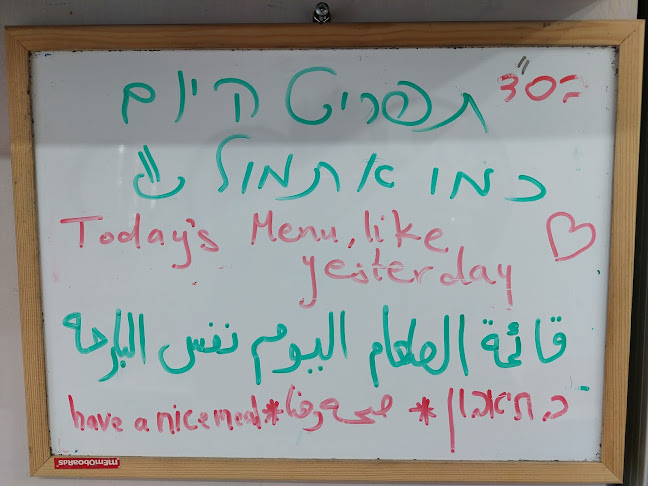 בס"ד
תפריט היום
כמו אתמול
Today's Menu, like
yesterday
قائمة الطعام اليوم نفس البارحه
בתיאבון * صحه وهنا * have a nice meal
memoboards